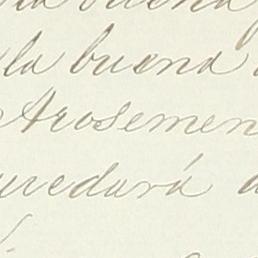 la buena
la buena
Arosemen
uredará a